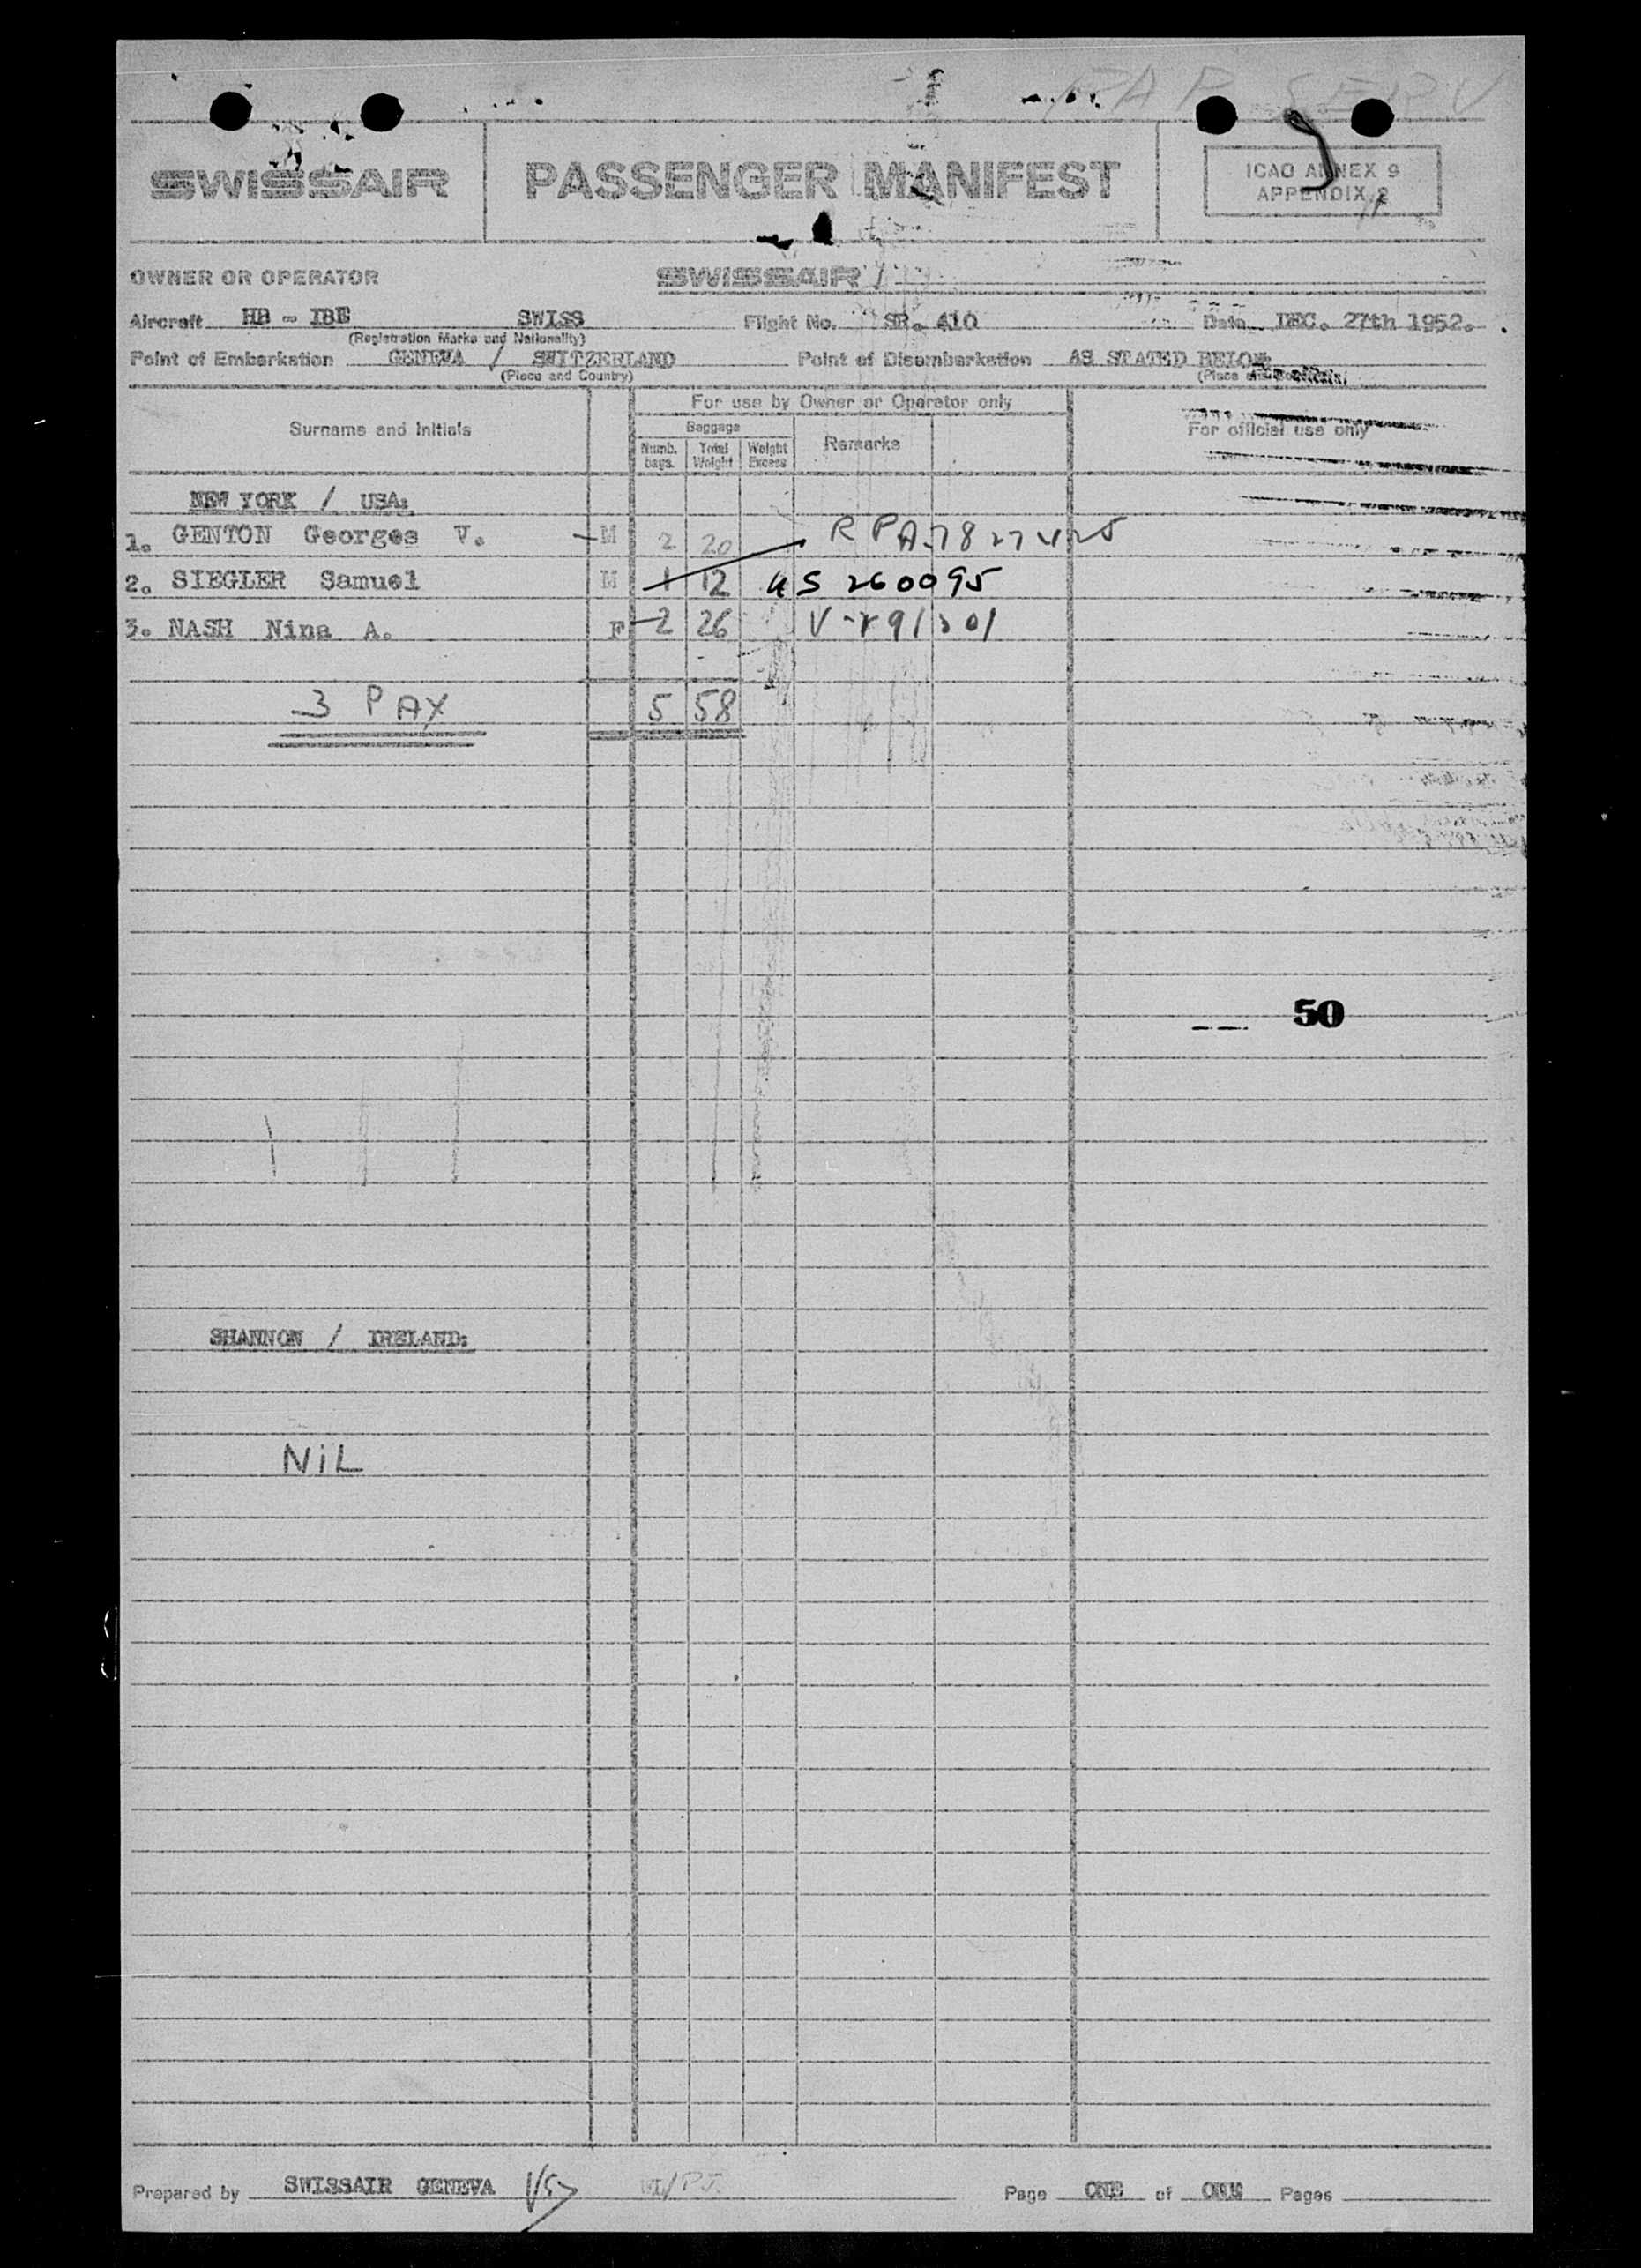 PAP SERV
SWISSAIR PASSENGER MANIFEST ICAO ANNEX 9
APPENDIX 2
OWNER OR OPERATOR SWISSAIR
Aircraft HB - IBE SWISS Flight No. SR. 410 Date DEC. 27th 1952.
(Registration Marks and Nationality)
Point of Embarkation GENEVA / SWITZERLAND Point of Disembarkation AS STATED BELOW
(Place and Country) (Place and
For use by Owner or Operator only
Surname and Initials Baggage Remarks For official use only
Numb. bags. Total Weight Weight Excess
NEW YORK / USA:
1. GENTON Georges V. M 2 20
2. SIEGLER Samuel M 1 12 US 260095
3. NASH Nina A. F 2 26
3 PAX 5 58
50
SHANNON / IRELAND:
NiL
Prepared by SWISSAIR GENEVA Page ONE of ONE Pages